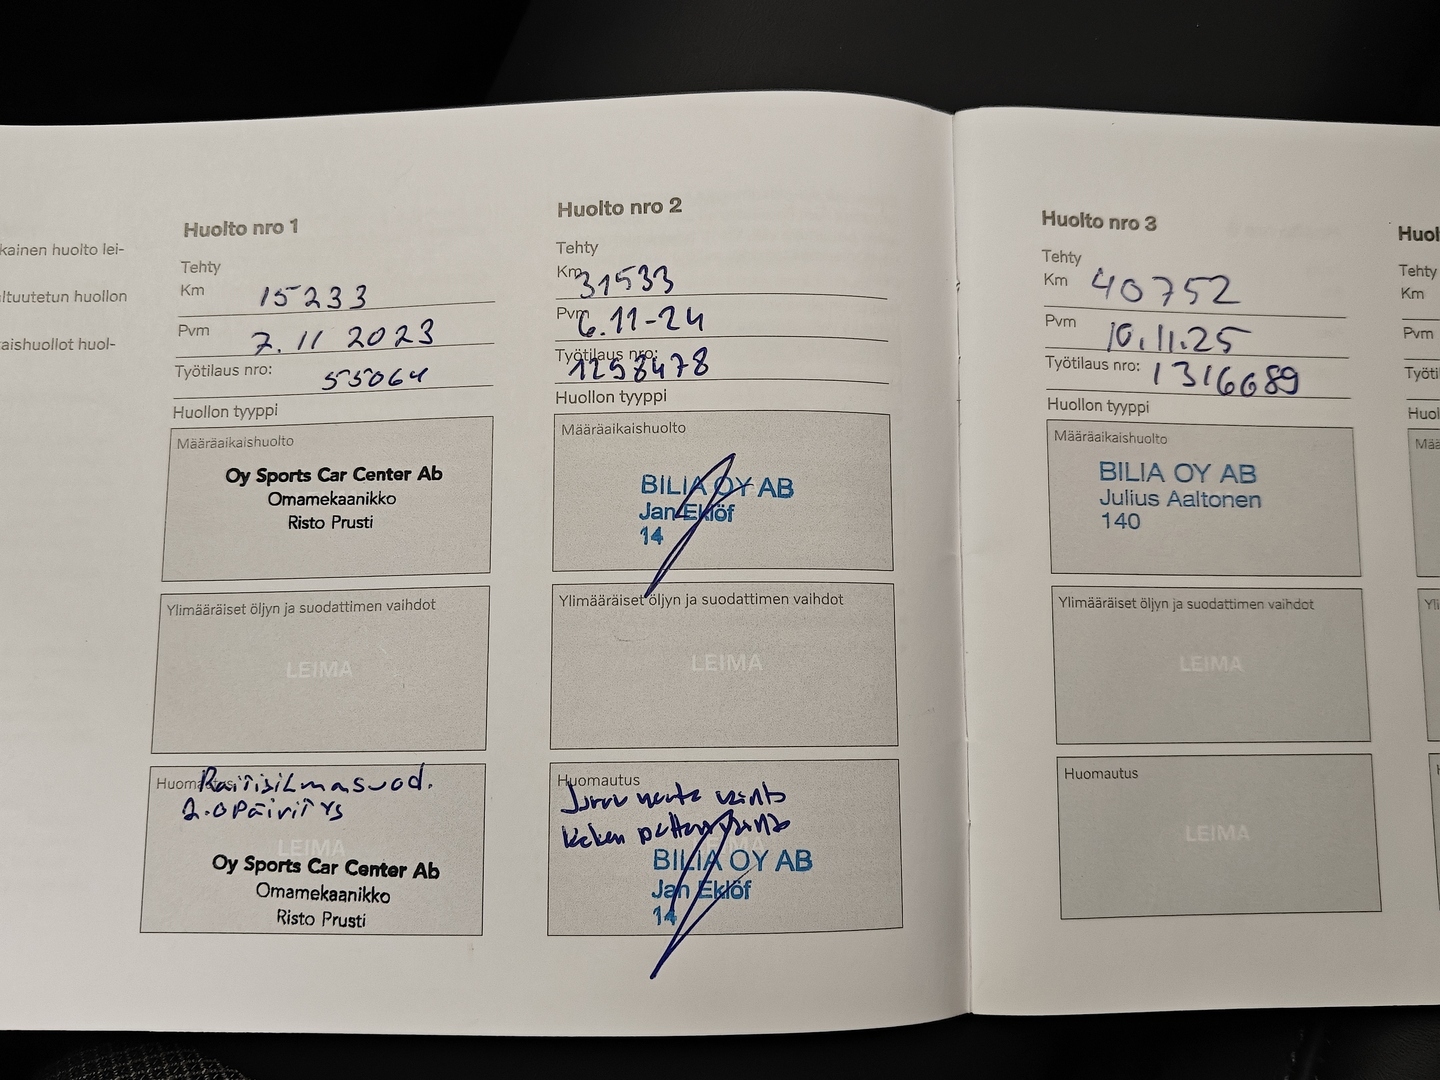 kainen huolto lei-
ltuutetun huollon
aishuollot huol-
Huolto nro 1
Tehty
Km 15233
Pvm 7. 11 2023
Työtilaus nro: 55064
Huollon tyyppi
Määräaikaishuolto
Oy Sports Car Center Ab
Omamekaanikko
Risto Prusti
Ylimääräiset öljyn ja suodattimen vaihdot
LEIMA
Huomautus Raitisilmasuod.
2.0 Päivitys
LEIMA
Oy Sports Car Center Ab
Omamekaanikko
Risto Prusti
Huolto nro 2
Tehty
Km 31533
Pvm 6.11-24
Työtilaus nro: 1258478
Huollon tyyppi
Määräaikaishuolto
BILIA OY AB
Jan Eklöf
14
Ylimääräiset öljyn ja suodattimen vaihdot
LEIMA
Huomautus
Jarru neste vaihto
LEIMA
BILIA OY AB
Jan Eklöf
14
Huolto nro 3
Tehty
Km 40752
Pvm 10.11.25
Työtilaus nro: 1316689
Huollon tyyppi
Määräaikaishuolto
BILIA OY AB
Julius Aaltonen
140
Ylimääräiset öljyn ja suodattimen vaihdot
LEIMA
Huomautus
LEIMA
Huol
Tehty
Km
Pvm
Työti
Huol
Mää
Yli